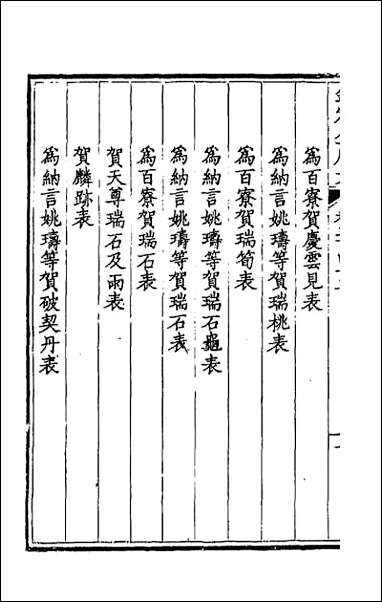 為百寮賀慶雲見表
為納言姚璹等賀瑞桃表
為百寮賀瑞筍表
為納言姚璹等賀瑞石龜表
為納言姚璹等賀瑞石表
為百寮賀瑞石表
賀天尊瑞石及雨表
賀麟跡表
為納言姚璹等賀破契丹表